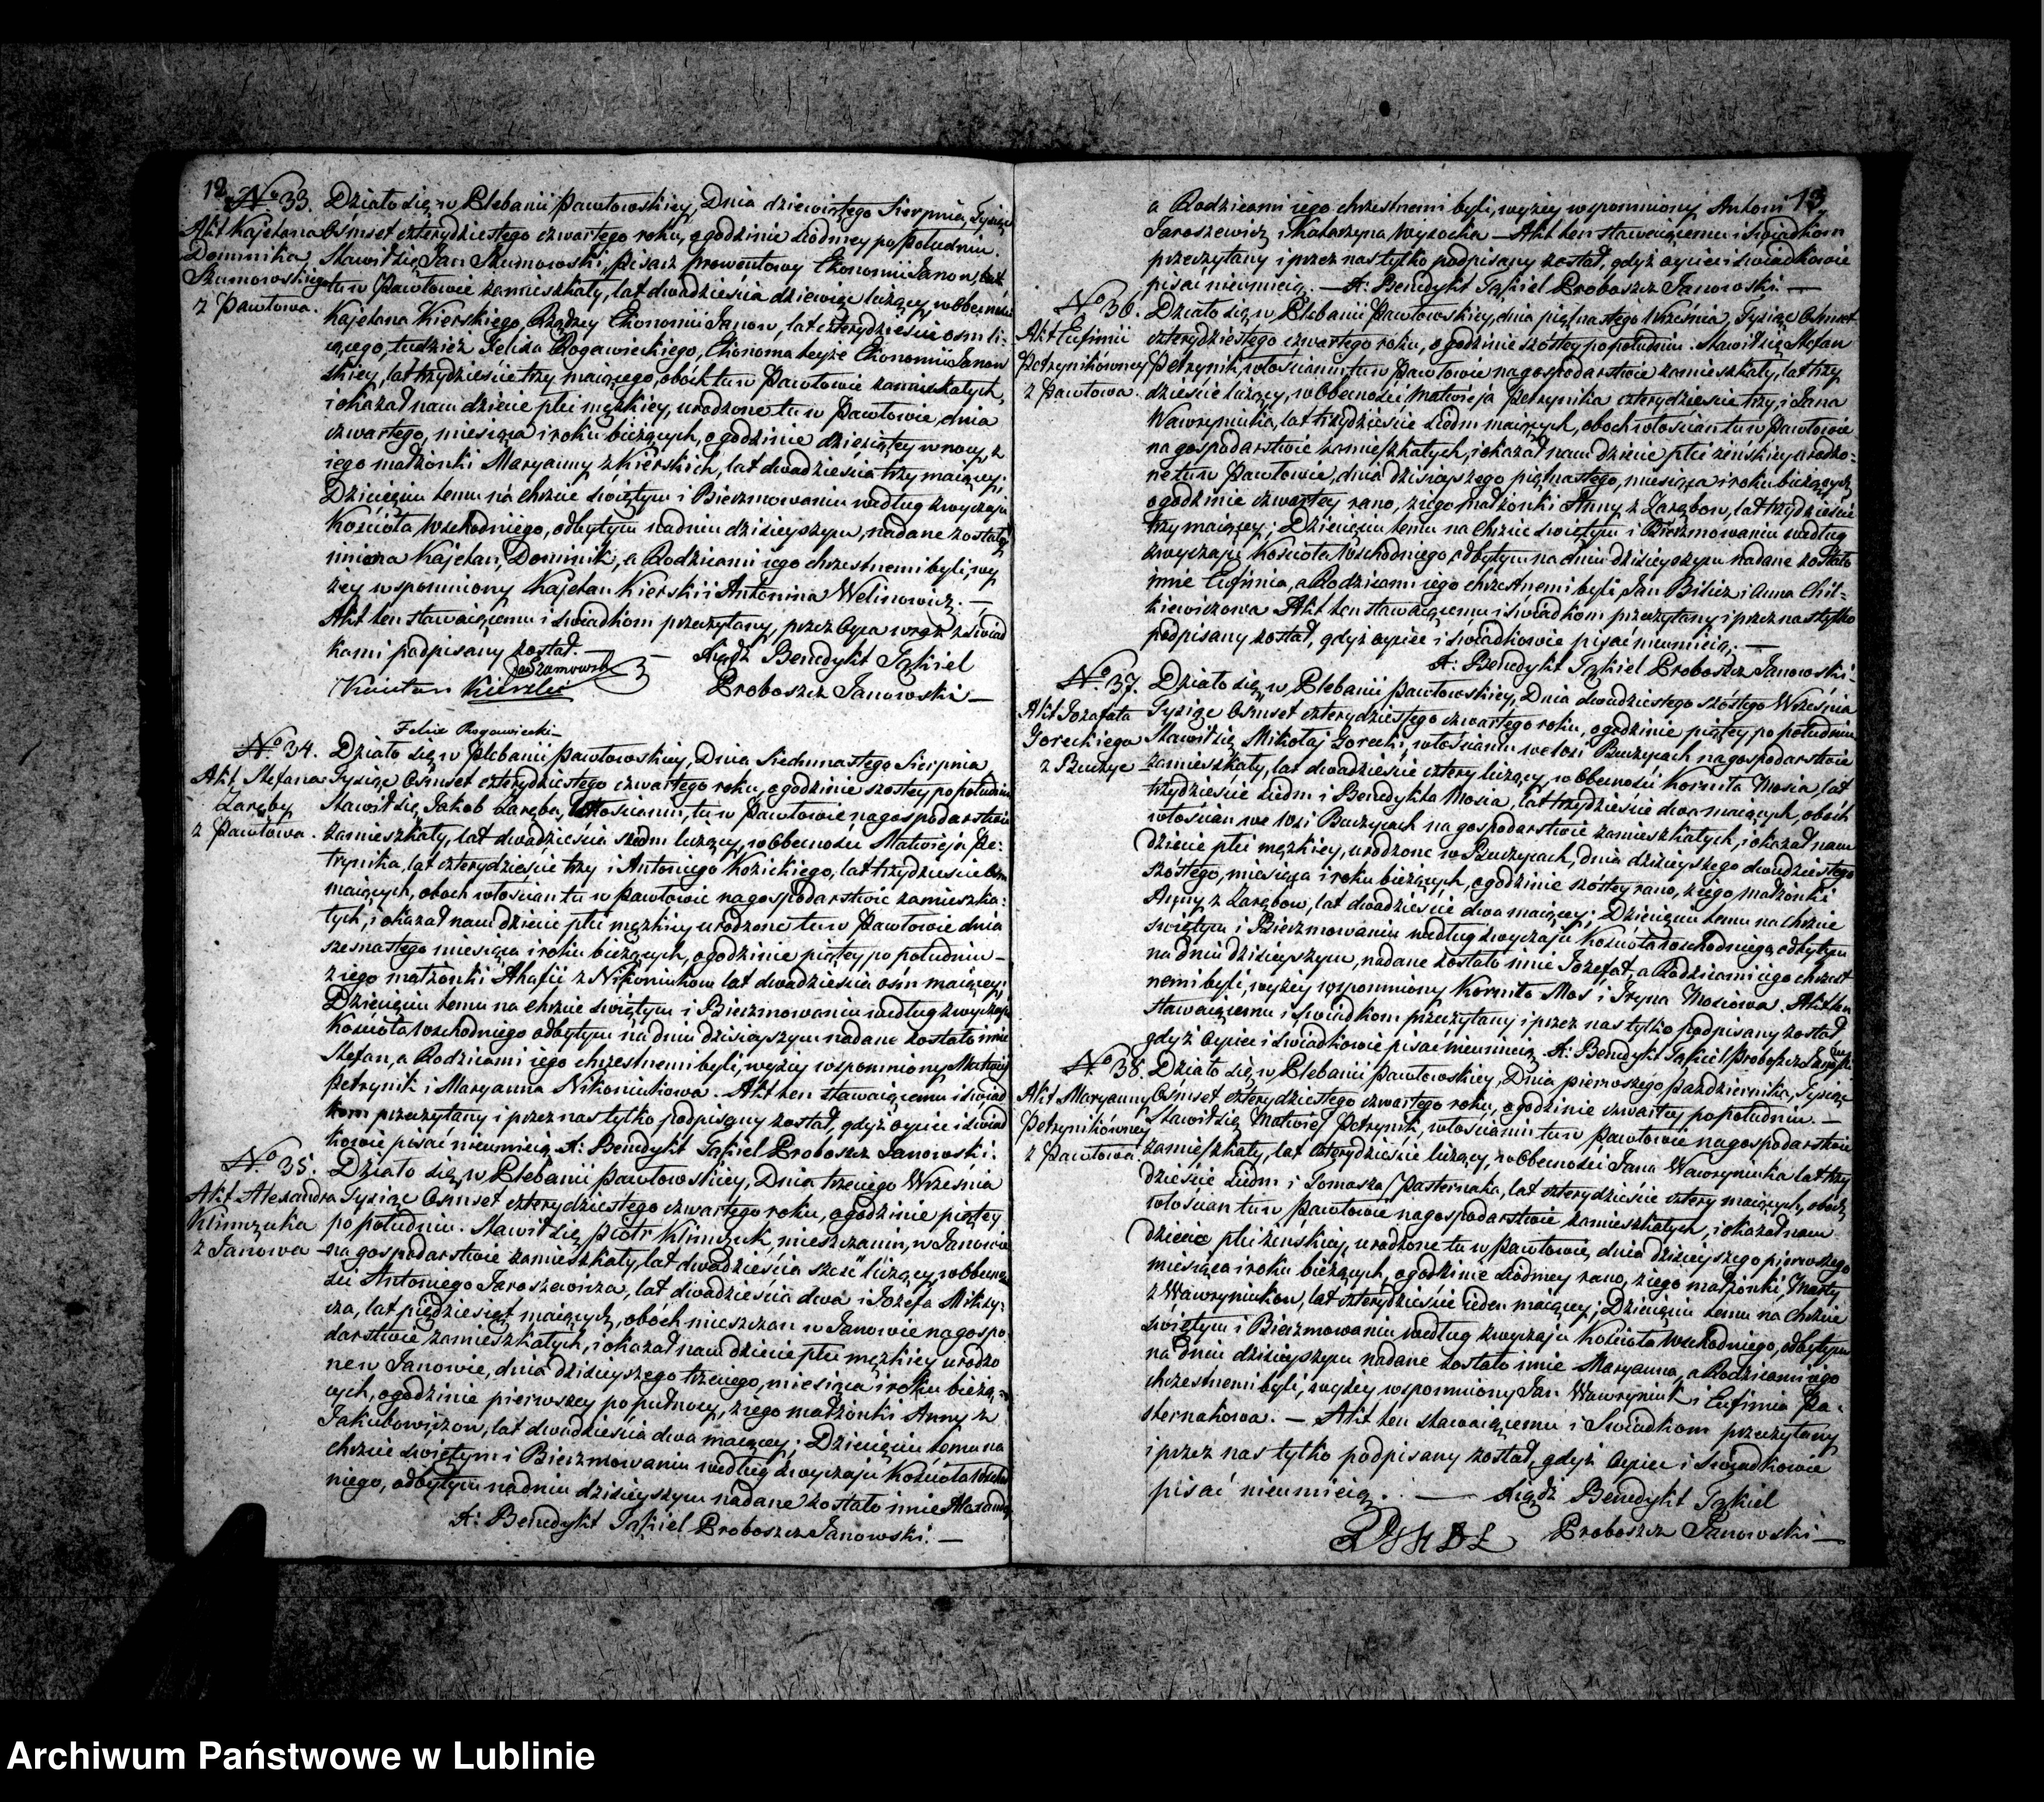 12
No 33.
Akt Kajetana
Dominika
Szumowskiego
z Pawłowa.
Działo się w Plebanii Pawłowskiey, Dnia dziewiątego Sierpnia, Tysiąc
Ośmset czterydziestego czwartego roku, o godzinie siódmey po południu.
Stawił się Jan Szumowski, pisarz prowentowy Ekonomii Janow,
tu w Pawłowie zamieszkały, lat dwadzieścia dziewięć liczący, w obecności
Kajetana Kierskiego, Rządzcy Ekonomii Janow, lat czterydzieście ośm li-
czącego, tudzież Felixa Rogawieckiego, Ekonoma teyże Ekonomii Janow
skiey, lat trzydzieście trzy maiącego, obóch tu w Pawłowie zamieszkałych,
i okazał nam dziecie płci męzkiey, urodzone tu w Pawłowie, dnia
czwartego, miesiąca i roku bieżących, o godzinie dziesiątey w nocy, z
iego małżonki Maryanny z Kierskich, lat dwadzieścia trzy maiącey;
Dziecięciu temu na chrzcie świętym i Bierzmowaniu według zwyczaju
Kościoła Wschodniego, odbytym na dniu dzisieyszym, nadane zostały
imiona Kajetan, Dominik, a Rodzicami iego chrzestnemi byli, wy
żey wspomniony Kajetan Kierski i Antonina Welinowicz. —
Akt ten stawaiącemu i świadkom przeczytany, przez Oyca wraz z świad
kami podpisany został. —
Jan Szumowski — Xiądz Benedykt Tąkiel
Kaietan Kierski Proboszcz Janowski —
Felix Rogawiecki —
No 34.
Akt Stefana
Zaręby
z Pawłowa.
Działo się w Plebanii Pawłowskiey, Dnia Siedmnastego Sierpnia
Tysiąc Ośmset czterydziestego czwartego roku, o godzinie szostey po południu
Stawił się, Jakob Zaręba, Włościanin, tu w Pawłowie na gospodarstwie
zamieszkały, lat dwadzieścia siedm liczący, w Obecności Matwieja Pe-
trynika, lat czterydzieście trzy i Antoniego Kozickiego, lat trzydzieście ośm
maiących, oboch włościan tu w Pawłowie na gospodarstwie zamieszka-
łych, i okazał nam dziecie płci męzkiey urodzone tu w Pawłowie dnia
szesnastego miesiąca i roku bieżących, o godzinie piątey po południu —
z iego małżonki Ahafii z Nikoniukow lat dwadzieścia ośm maiącey;
Dziecięciu temu na chrzcie świętym i Bierzmowaniu według zwyczaju
Kościoła Wschodniego odbytym na dniu dzisieyszym nadane zostało imie
Stefan, a Rodzicami iego chrzestnemi byli, wyżey wspomniony Matwiey
Petrynik i Maryanna Nikoniukowa. Akt ten stawaiącemu i świad
kom przeczytany i przez nas tylko podpisany został, gdyż oyciec i świad
kowie pisać nieumieią. X: Benedykt Tąkiel Proboszcz Janowski.
No 35.
Akt Alexandra
Klimczuka
z Janowa
Działo się w Plebanii Pawłowskiey, Dnia trzeciego Września
Tysiąc Ośmset czterydziestego czwartego roku, o godzinie piątey
po południu. Stawił się, Piotr Klimczuk, mieszczanin, w Janowie
na gospodarstwie zamieszkały, lat dwadzieścia sześć liczący, w obecno
ści Antoniego Jaroszewicza, lat dwadzieścia dwa i Józefa Mikzy-
cza, lat pięddziesiąt maiących, obóch mieszczan w Janowie na gospo-
darstwie zamieszkałych, i okazał nam dziecie płci męzkiey urodzo
ne w Janowie, dnia dzisieyszego trzeciego, miesiąca i roku bieżą-
cych, o godzinie pierwszey po pułnocy, z iego małżonki Anny z
Jakubowiczow, lat dwadzieścia dwa maiącey; Dziecięciu temu na
chrzcie świętym i Bierzmowaniu według zwyczaju Kościoła Wschod
niego, odbytym na dniu dzisieyszym nadane zostało imie Alexander
X: Benedykt Tąkiel Proboszcz Janowski. —
13
a Rodzicami iego chrzestnemi byli, wyżey wspomniony Antoni
Jaroszewicz i Katarzyna Wysocka — Akt ten stawaiącemu i Świadkom
przeczytany i przez nas tylko podpisany został, gdyż oyciec i świadkowie
pisać nieumieią. — X: Benedykt Tąkiel Proboszcz Janowski. —
No 36.
Akt Eufimii
Petrynikówney
z Pawłowa.
Działo się w Plebanii Pawłowskiey, dnia piętnastego Września, Tysiąc Ośmset
czterydziestego czwartego roku, o godzinie szóstey po południu. Stawił się Stefan
Petrynik, włościanin tu w Pawłowie na gospodarstwie zamieszkały, lat trzy
dzieście liczący, w Obecności Matwieja Petrynika czterydzieście trzy, i Jana
Wawryniuka, lat trzydzieście siedm maiących, oboch włościan tu w Pawłowie
na gospodarstwie zamieszkałych, i okazał nam dziecie płci żeńskiey urodzo-
ne tu w Pawłowie, dnia dzisiayszego piętnastego, miesiąca i roku bieżących
o godzinie czwartey rano, z iego małżonki Anny z Zarębow, lat trzydzieście
trzy maiącey; Dziecięciu temu na Chrzcie świętym i Bierzmowaniu według
zwyczaju Kościoła Wschodniego odbytym na dniu dzisieyszym nadane zostało
imie Eufimia, a Rodzicami iego chrzestnemi byli, Jan Bilicz i Anna Chil-
kiewiczowa. Akt ten stawaiącemu i świadkom przeczytany i przez nas tylko
podpisany został, gdyż oyciec i świadkowie pisać nieumieią. —
X: Benedykt Tąkiel Proboszcz Janowski.
No 37.
Akt Jozafata
Goreckiego
z Buczyc
Działo się w Plebanii Pawłowskiey, Dnia dwudziestego szóstego Września
Tysiąc Ośmset czterydziestego czwartego roku, o godzinie piątey po południu
Stawił się Mikołaj Gorecki, włościanin we wsi Buczycach na gospodarstwie
zamieszkały, lat dwadzieście cztery liczący, w Obecności Kornita Mosia, lat
trzydzieście siedm i Benedykta Mosia, lat trzydzieście dwa maiących, obóch
włościan we wsi Buczycach na gospodarstwie zamieszkałych, i okazał nam
Dziecie płci męzkiey, urodzone w Buczycach, dnia dzisieyszego dwudziestego
szóstego, miesiąca i roku bieżących, o godzinie szóstey rano, z iego małżonki
Anny z Zarębow, lat dwadzieście dwa maiącey; Dziecięciu temu na Chrzcie
świętym i Bierzmowaniu według zwyczaju Kościoła Wschodniego, odbytym
na dniu dzisieyszym, nadane zostało imie Jozefat, a Rodzicami iego chrzest
nemi byli, wyżey wspomniony Kornito Moś i Jryna Mosiowa. Akt ten
stawaiącemu i świadkom przeczytany i przez nas tylko podpisany został
gdyż Oyciec i świadkowie pisać nieumieią. X: Benedykt Tąkiel Proboszcz Janowski.
No 38.
Akt Maryanny
Petrynikówney
z Pawłowa.
Działo się w Plebanii Pawłowskiey, Dnia pierwszego Października, Tysiąc
Ośmset czterydziestego czwartego roku, o godzinie czwartey po południu. —
Stawił się Matwiej Petrynik, włościanin tu w Pawłowie na gospodarstwie
zamieszkały, lat czterydzieście liczący, w Obecności Jana Wawryniuka lat trzy
dzieście siedm i Tomasza Pasternaka, lat czterydzieście cztery maiących, obóch
włościan tu w Pawłowie na gospodarstwie zamieszkałych, i okazał nam
Dziecie płci żeńskiej, urodzone tu w Pawłowie, dnia dzisieyszego pierwszego
miesiąca i roku bieżących, o godzinie siódmey rano, z iego małżonki Marty
z Wawryniukow, lat czterydzieście ieden maiącey; Dziecięciu temu na Chrzcie
świętym i Bierzmowaniu według zwyczaju Kościoła Wschodniego, odbytym
na dniu dzisieyszym nadane zostało imie Maryanna, a Rodzicami iego
chrzestnemi byli, wyżey wspomniony Jan Wawryniuk i Eufimia Pa-
sternakowa. — Akt ten stawaiącemu i Świadkom przeczytany
i przez nas tylko podpisany został, gdyż Oyciec i Świadkowie
pisać nieumieią. — Xiądz Benedykt Tąkiel
Proboszcz Janowski —
Archiwum Państwowe w Lublinie